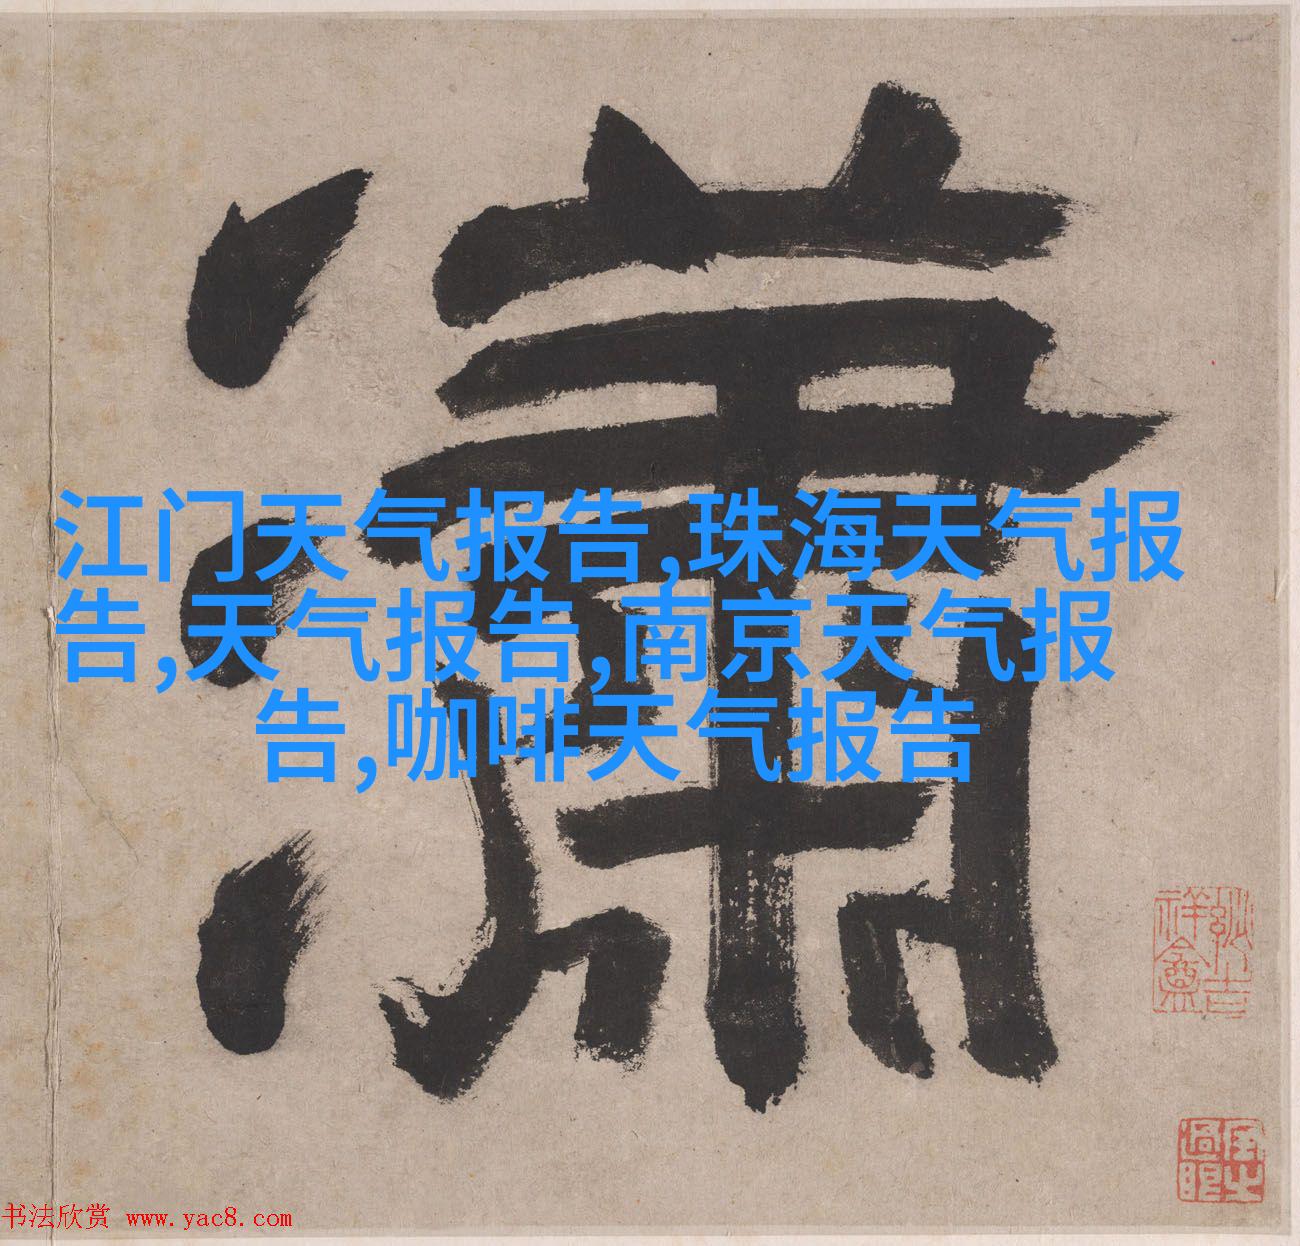 瀟
江门天气报告,珠海天气报
告,天气报告,南京天气报
告,咖啡天气报告
书法欣赏 www.yac8.com